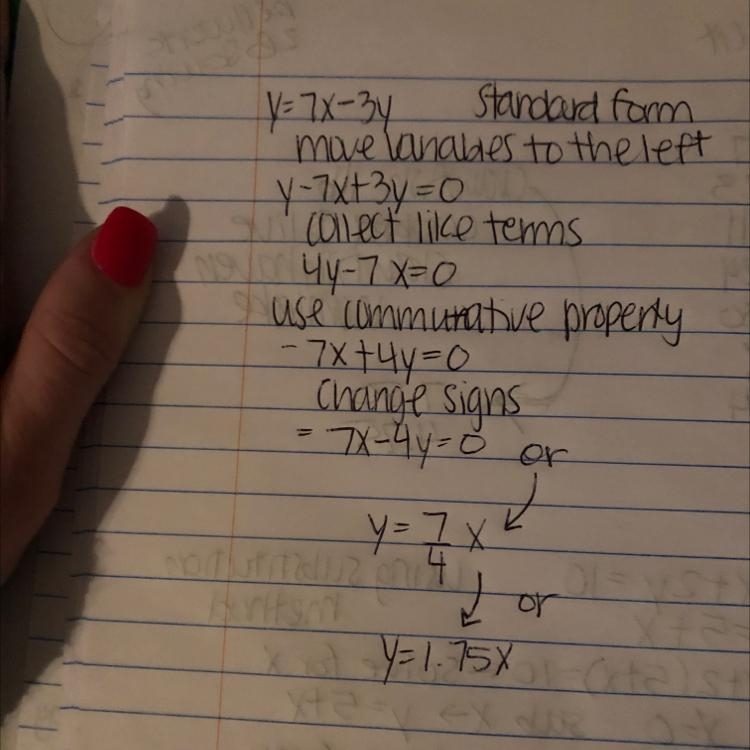 y=7x-3y standard form
move variables to the left
y-7x+3y=0
collect like terms
4y-7x=0
use commutative property
-7x+4y=0
change signs
= 7x-4y=0 or
y=7/4 x
or
y=1.75x